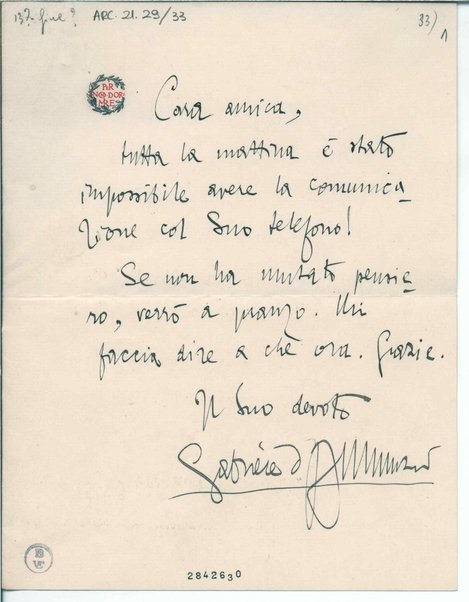 13? Giu.e? ARC. 21.29/33 33) 1
PER
NON DOR
MIRE
Cara amica,
tutta la mattina è stato
impossibile avere la comunica-
zione col Suo telefono!
Se non ha mutato pensie-
ro, verrò a pranzo. Mi
faccia dire a chè ora. Grazie.
Il Suo devoto
Gabriele d'Annunzio
2842630